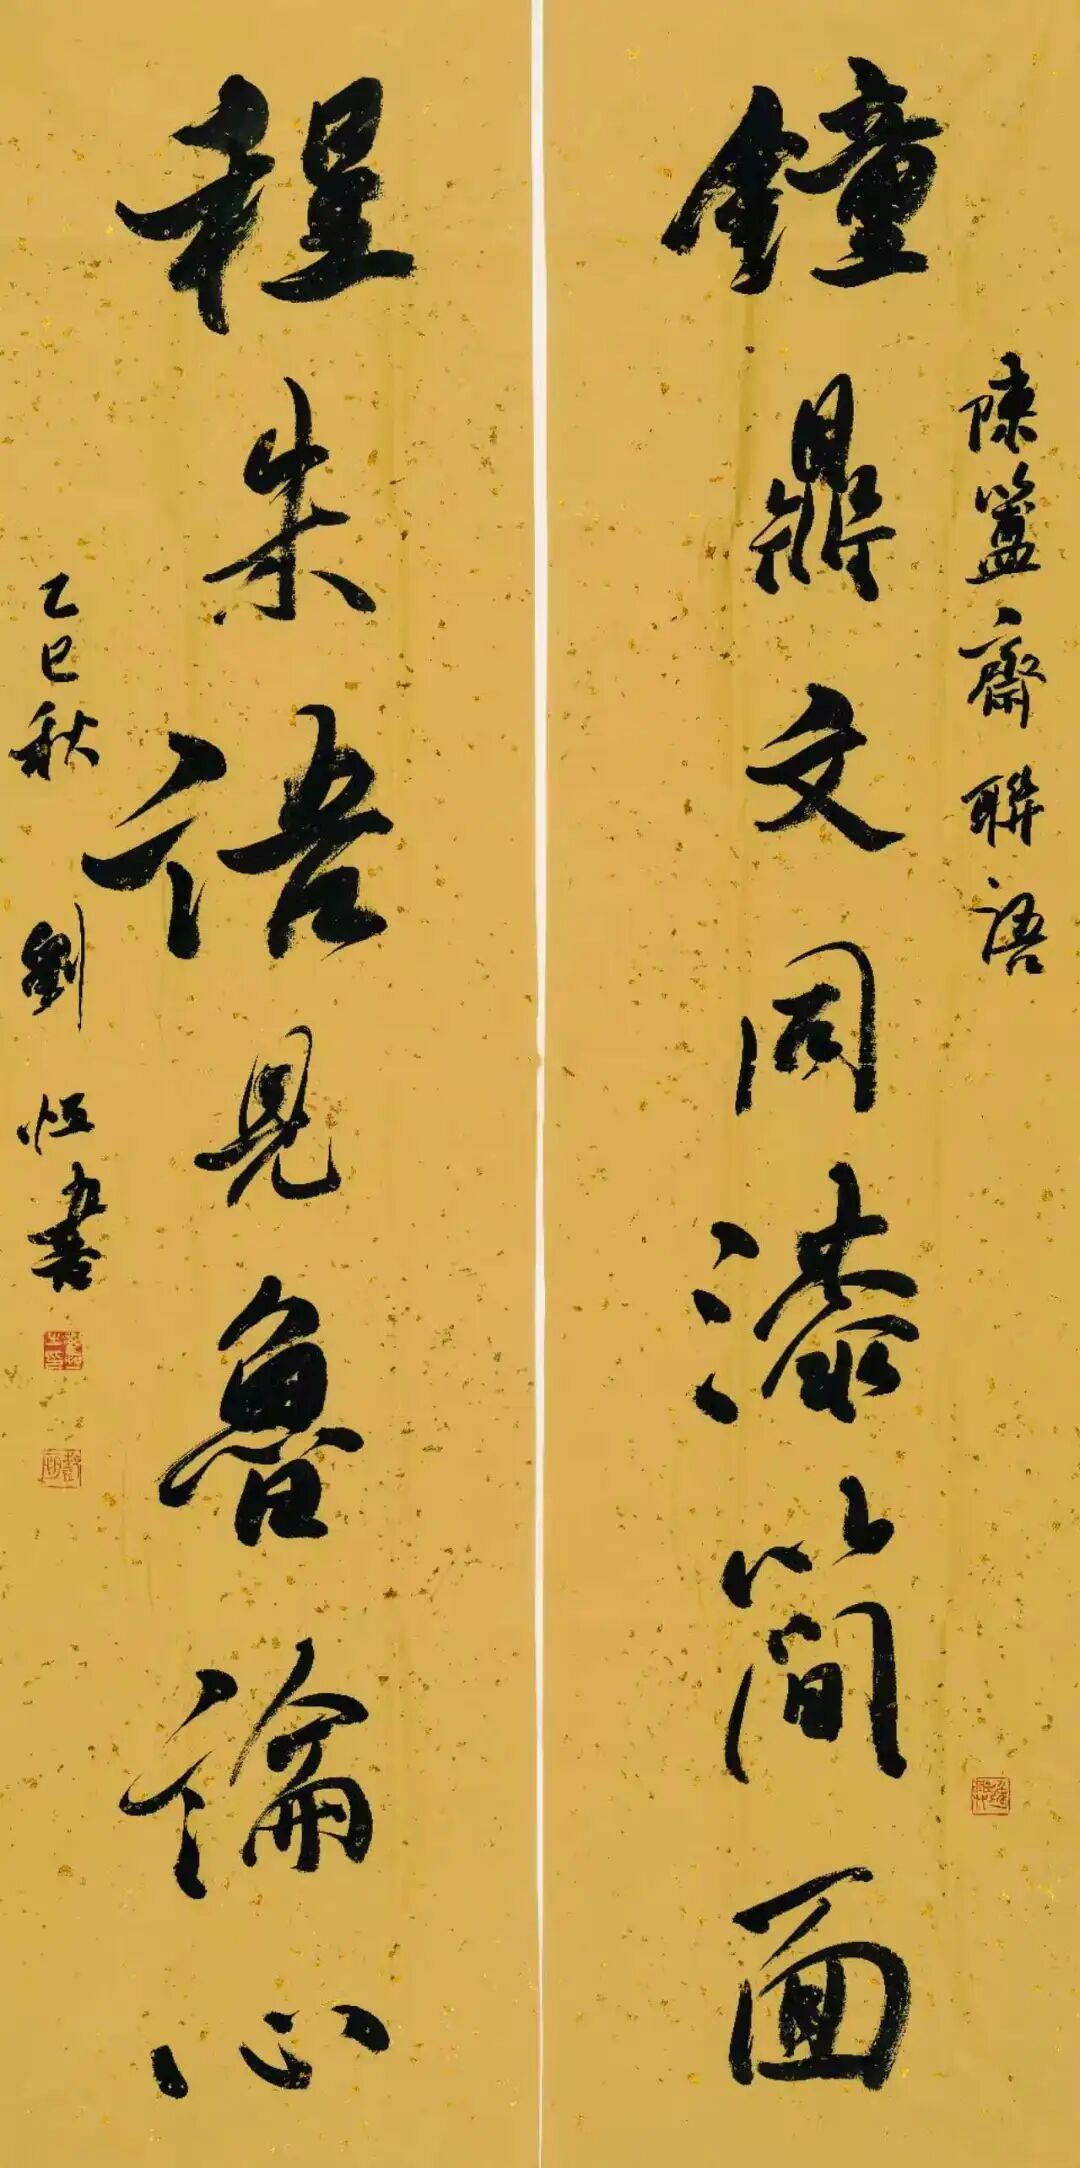 鐘鼎文同漆簡面
陳簠齋聯語
程朱語見魯論心
乙巳秋 劉恒書